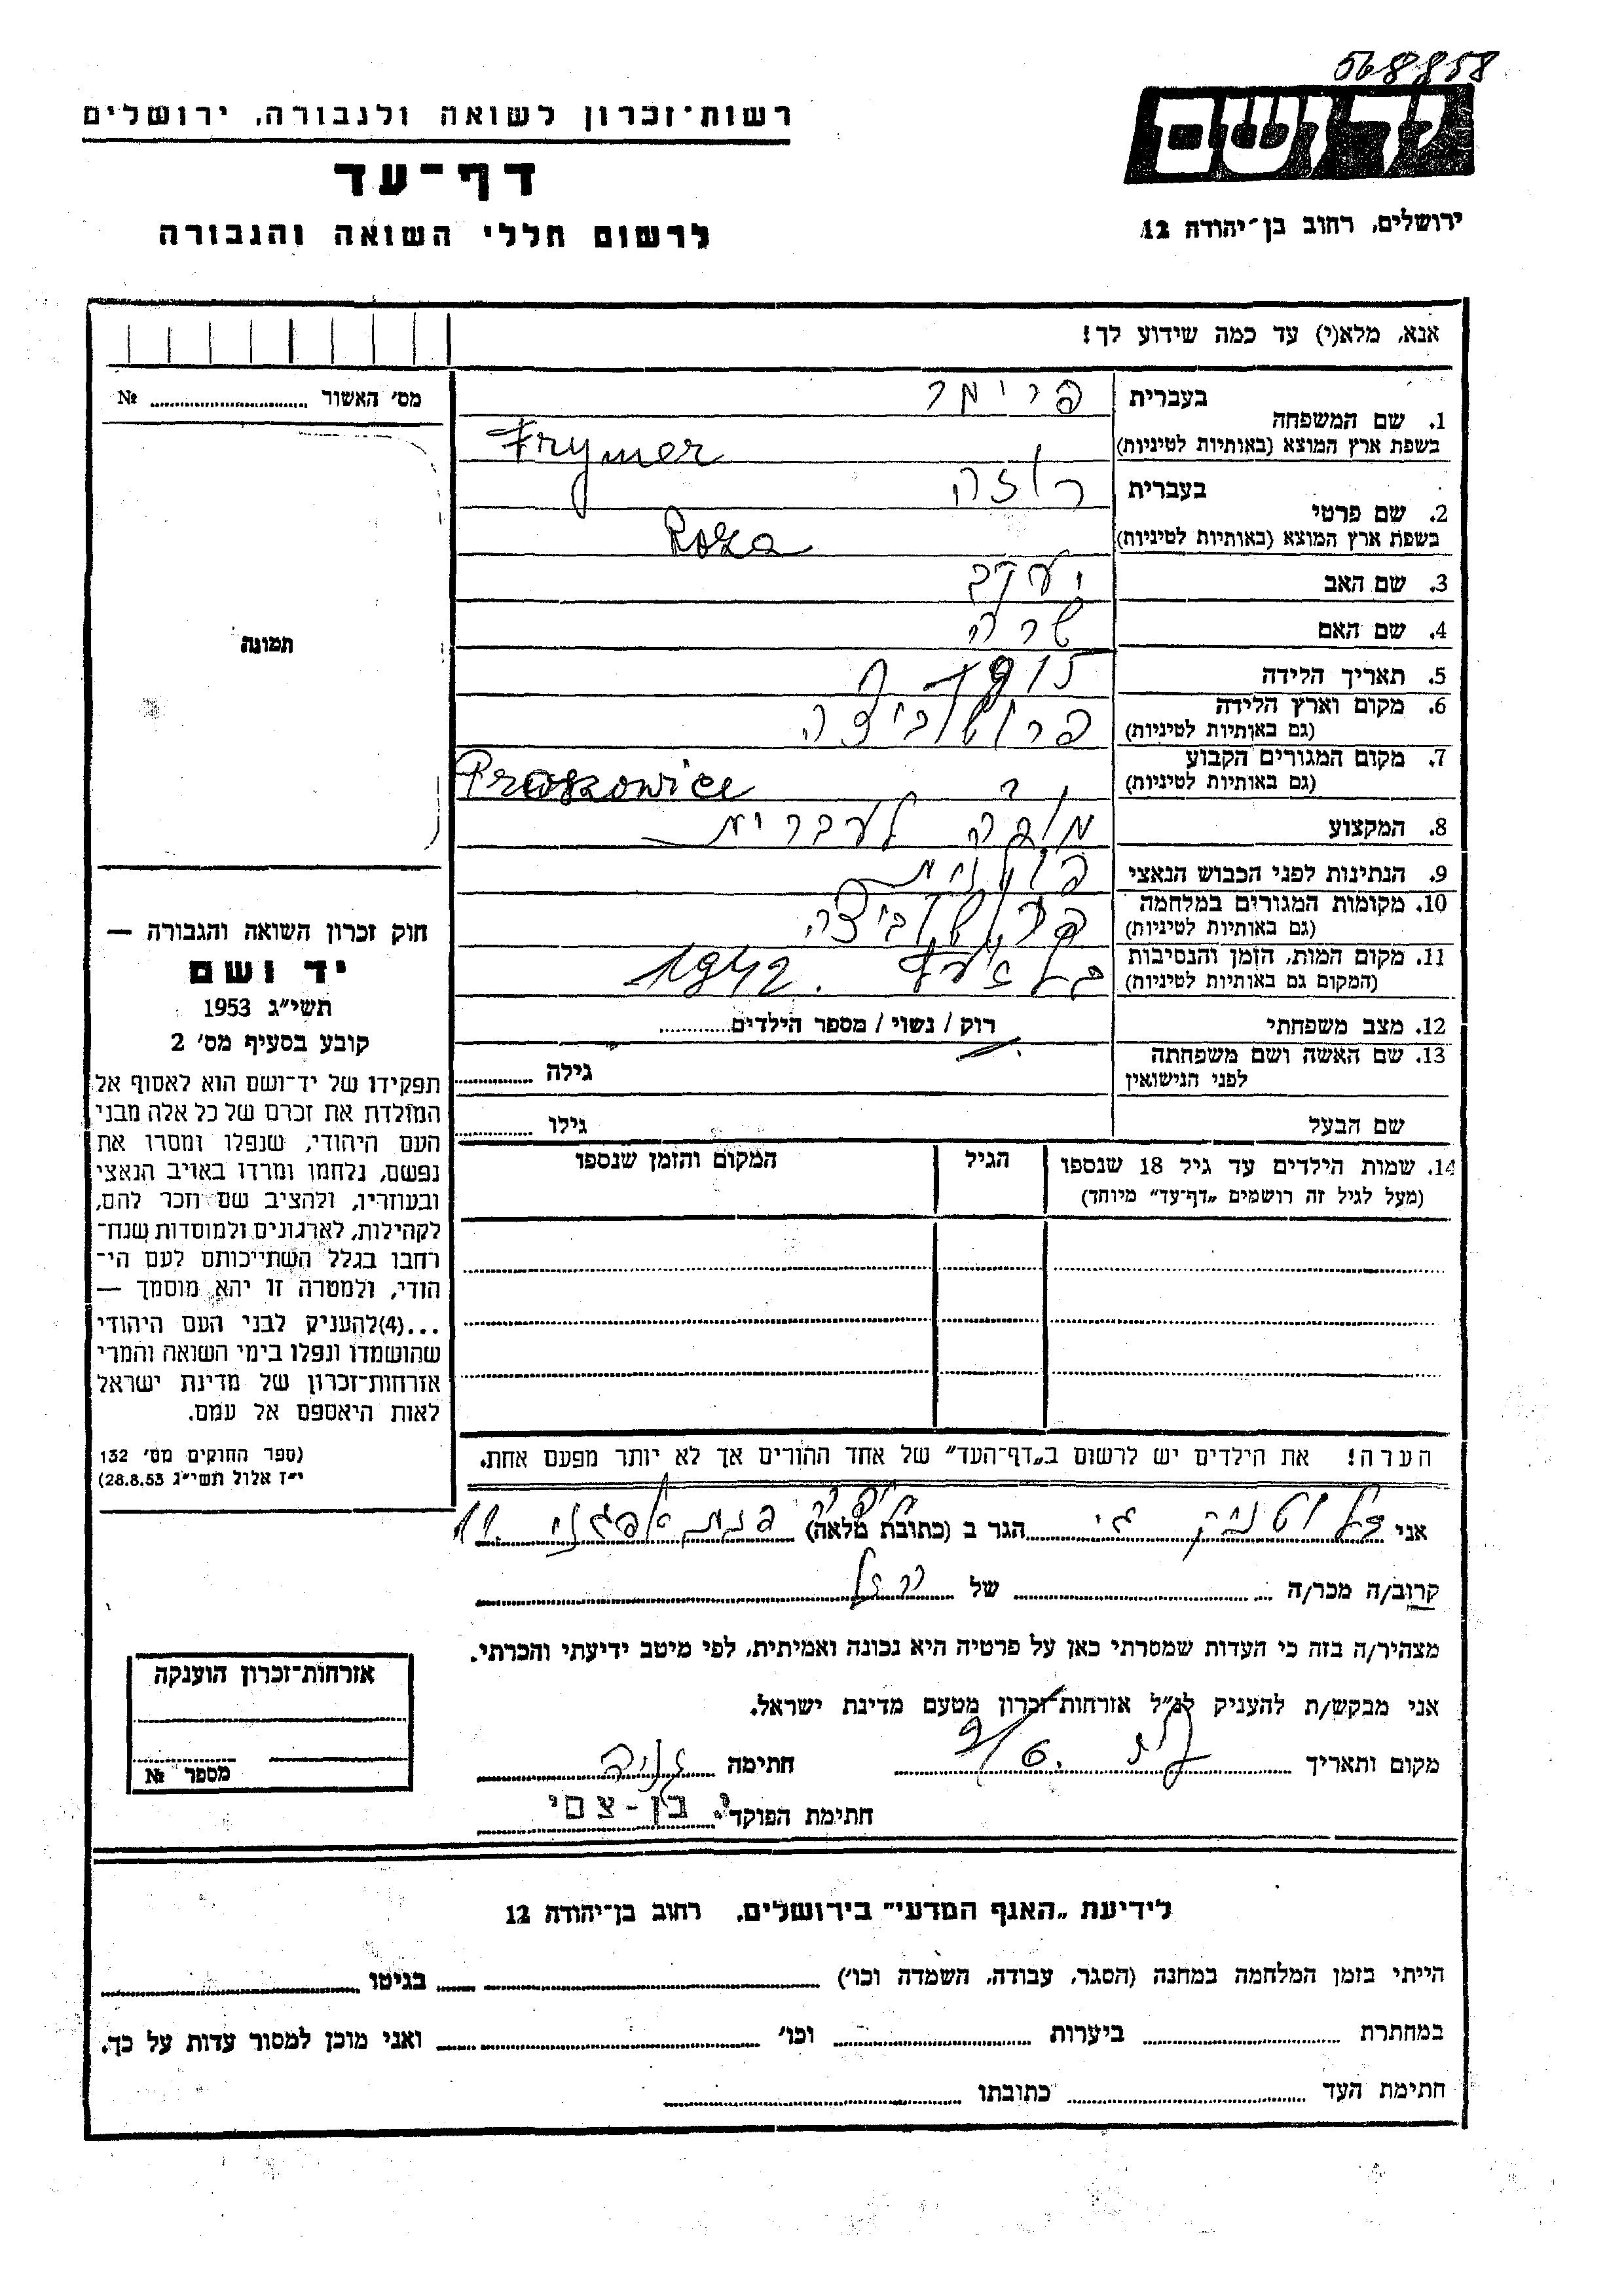 568858
יד ושם
רשות־זכרון לשואה ולגבורה, ירושלים
דף־עד
לרשום חללי השואה והגבורה
ירושלים, רחוב בן־יהודה 12
אנא, מלא(י) עד כמה שידוע לך!
מס׳ האשור № 
תמונה
1. שם המשפחה
בעברית פרימר
בשפת ארץ המוצא (באותיות לטיניות) Frymer
2. שם פרטי
בעברית רוזה
בשפת ארץ המוצא (באותיות לטיניות) Roza
3. שם האב יעקב
4. שם האם שרה
5. תאריך הלידה 1915
6. מקום וארץ הלידה
(גם באותיות לטיניות) פרושוביצה
7. מקום המגורים הקבוע
(גם באותיות לטיניות) Proszowice
8. המקצוע מורה לעברית
9. הנתינות לפני הכבוש הנאצי פולנית
10. מקומות המגורים במלחמה
(גם באותיות לטיניות) פרושוביצה
11. מקום המות, הזמן והנסיבות
(המקום גם באותיות לטיניות) 1942.
12. מצב משפחתי רוק / נשוי / מספר הילדים
13. שם האשה ושם משפחתה
לפני הנישואין גילה
שם הבעל גילו
14. שמות הילדים עד גיל 18 שנספו הגיל המקום והזמן שנספו
(מעל לגיל זה רושמים „דף־עד” מיוחד)
הערה! את הילדים יש לרשום ב„דף־העד” של אחד ההורים אך לא יותר מפעם אחת.
חוק זכרון השואה והגבורה —
יד ושם
תשי״ג 1953
קובע בסעיף מס׳ 2
תפקידו של יד־ושם הוא לאסוף אל
המולדת את זכרם של כל אלה מבני
העם היהודי, שנפלו ומסרו את
נפשם, נלחמו ומרדו באויב הנאצי
ובעוזריו, ולהציב שם וזכר להם,
לקהילות, לארגונים ולמוסדות שנח־
רחבו בגלל השתייכותם לעם הי־
הודי, ולמטרה זו יהא מוסמך —
...(4)להעניק לבני העם היהודי
שהושמדו ונפלו בימי השואה והמרי
אזרחות־זכרון של מדינת ישראל
לאות היאספם אל עמם.
(ספר החוקים מס׳ 132
י״ז אלול תשי״ג 28.8.53)
אני הגר ב (כתובת מלאה) חיפה 11
קרוב/ה מכר/ה של
מצהיר/ה בזה כי העדות שמסרתי כאן על פרטיה היא נכונה ואמיתית, לפי מיטב ידיעתי והכרתי.
אני מבקש/ת להעניק לנ״ל אזרחות־זכרון מטעם מדינת ישראל.
מקום ותאריך חתימה
חתימת הפוקד י. בן-צםי
אזרחות־זכרון הוענקה
מספר №
לידיעת „האגף המדעי” בירושלים, רחוב בן־יהודה 12
הייתי בזמן המלחמה במחנה (הסגר, עבודה, השמדה וכו׳) בגיטו
במחתרת ביערות וכו׳ ואני מוכן למסור עדות על כך.
חתימת העד כתובתו